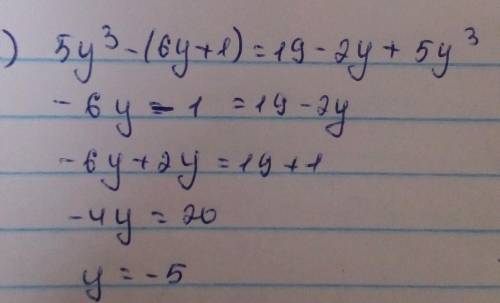 ) 5y³ - (6y+1) = 19 - 2y + 5y³
-6y - 1 = 19 - 2y
-6y + 2y = 19 + 1
-4y = 20
y = -5